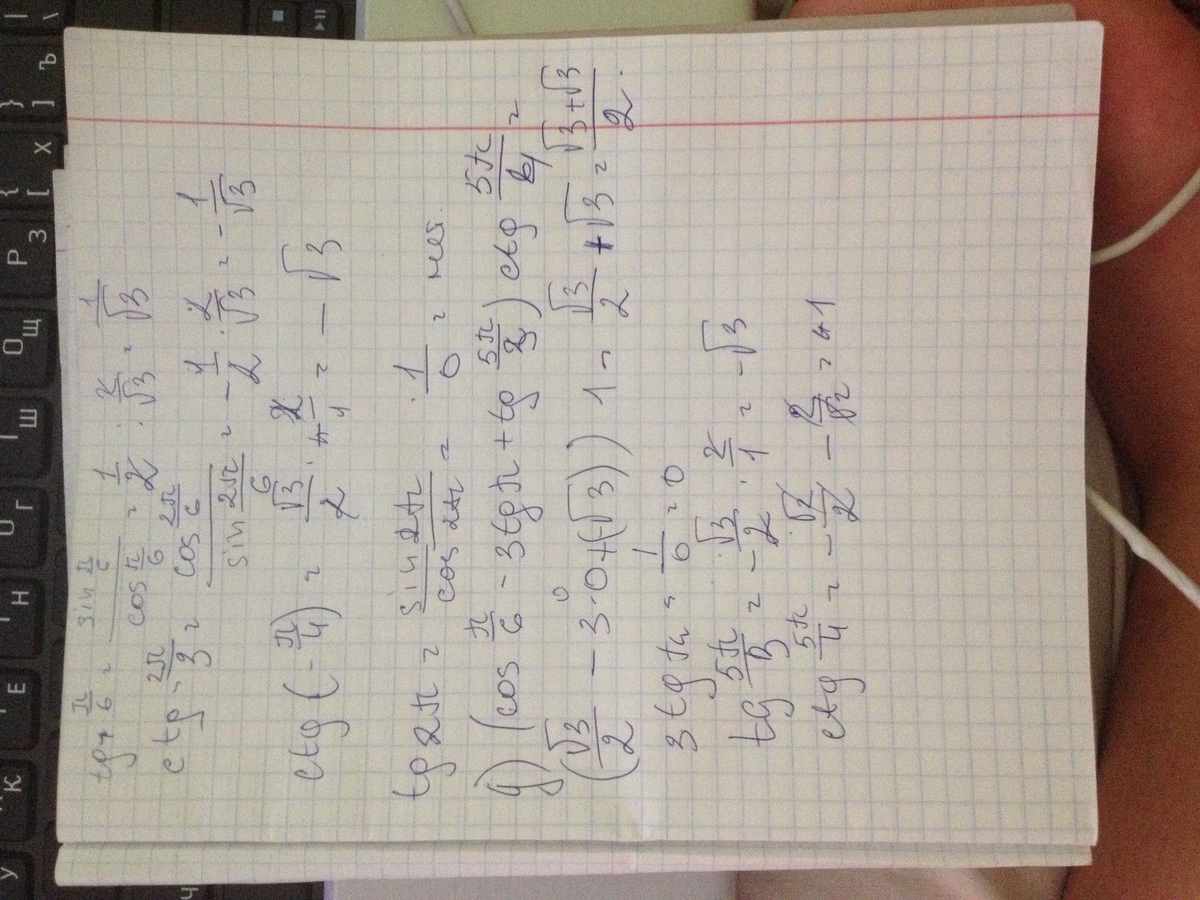 tg π/6 = sin π/6 / cos π/6 = 1/2 · 2/√3 = 1/√3
ctg 2π/3 = cos 2π/6 / sin 2π/6 = - 1/2 · 2/√3 = - 1/√3
ctg (- π/4) = √3/2 · = - √3
tg 2π = sin 2π / cos 2π = · 1/0 = нет.
(cos π/6 - 3tgπ + tg 5π/3) ctg 5π/4 =
(√3/2 - 3·0+(√3)) 1 = √3/2 + √3 = √3+√3 / 2 .
3 tg π = 1/0 = 0
tg 5π/3 = - √3/2 · 2/1 = - √3
ctg 5π/4 = - √2/2 - 2/√2 = +1
У К Е Н Г Ш Щ З Х Ъ
P O [ ] { } | \